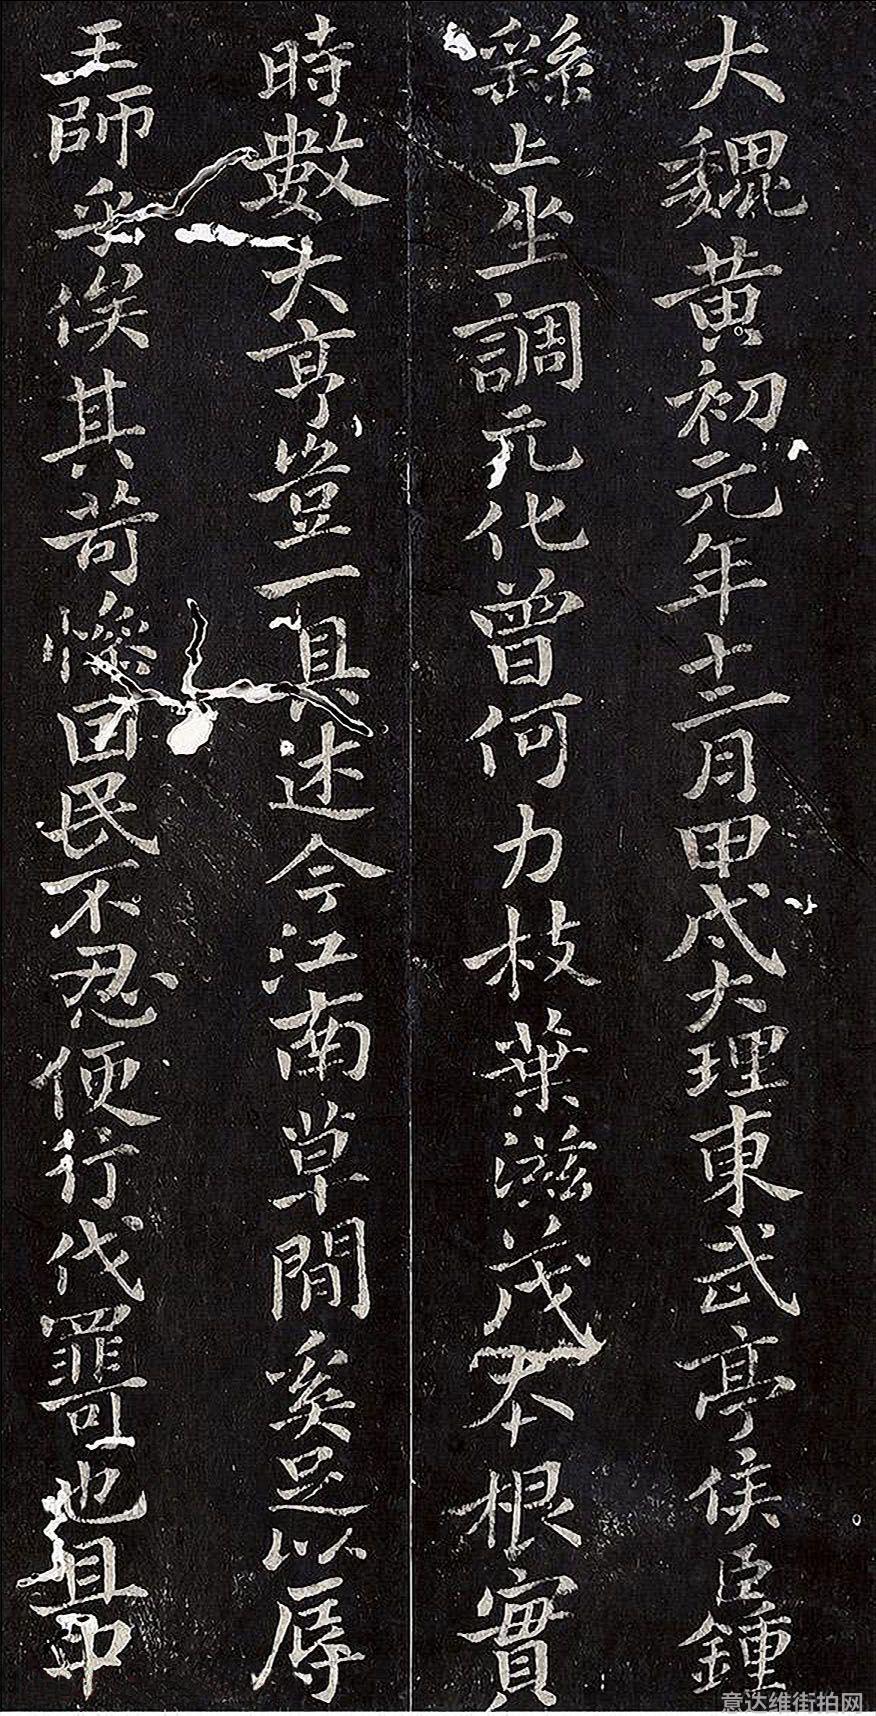 大魏黄初元年十二月甲戌大理東武亭侯臣鍾
繇上坐調元化曾何力枝葉滋茂本根實
時數大亨豈一具述今江南草間奚足以辱
王師乎俟其苛慘困民不忍便行伐罪可也且
意达维街拍网